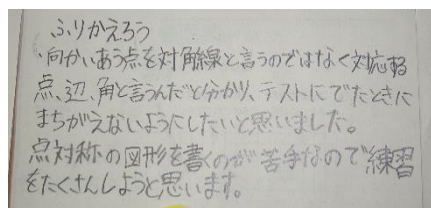 ふりかえろう
・向かいあう点を対角線と言うのではなく対応する
点、辺、角と言うんだと分かり、テストにでたときに
まちがえないようにしたいと思いました。
点対称の図形を書くのが苦手なので練習
をたくさんしようと思います。